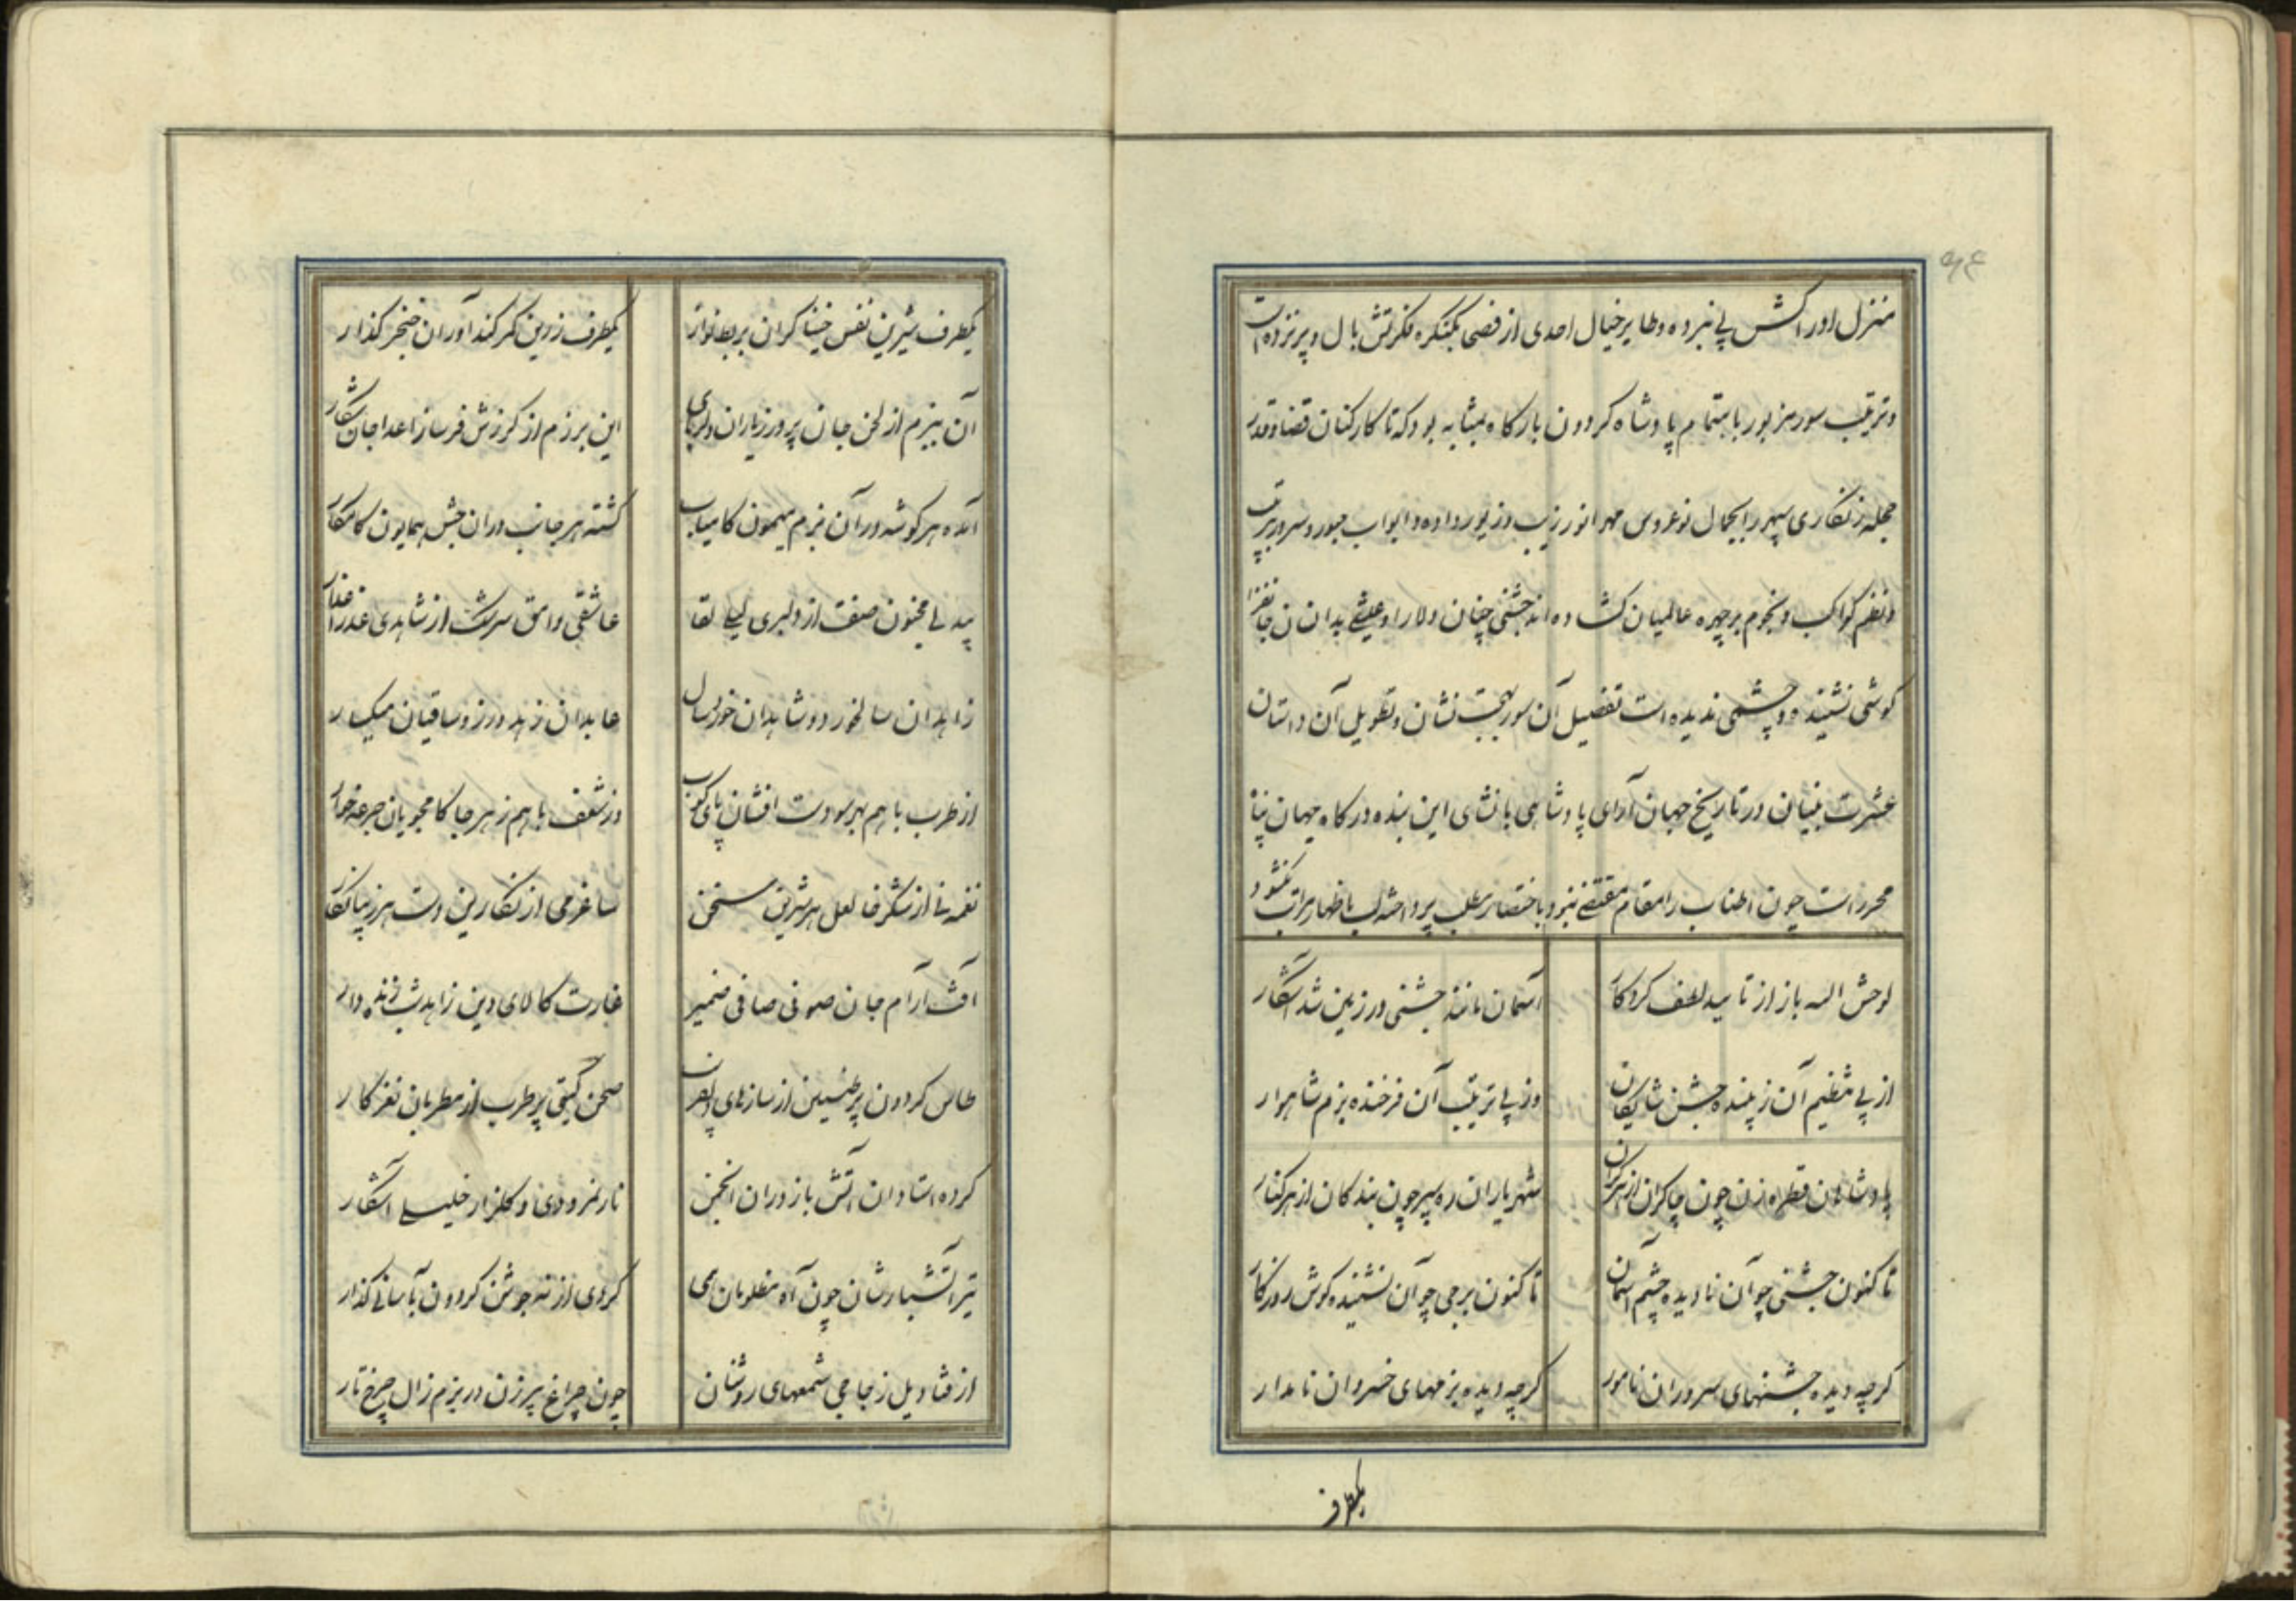 منزل اورا کسش پی نبرده و طایر خیال احدی از فصی کنکره فکرتش بال و پر نزده است
و ترتیب سور مزبور باهتمام پادشاه کردون بارکاه بمثابه بود که تا کارکنان قضا و قدر
حجله زنکاری سپهر را بجمال نوعروس مهر انور زیب و زیور داده و ابواب حبور و سرور بترتیب
و نظم کواکب و نجوم بر چهره عالمیان کشاده اند جشنی چنان دلارا و عیشی بدان سان جانفزا
کوشی نشنیده و چشمی ندیده است تفصیل آن سور بهجت نشان و تطویل آن داستان
عشرت بنیان در تاریخ جهان آرای پادشاهی بانشای این بنده درکاه جهان پناه
محرر است چون اطناب را مقام مقتضی نبود باختصار مطلب پرداخته لب باظهار مراتب نکشود
لوحش الله باز از تایید لطف کردکار
آسمان مانند جشنی در زمین شد آشکار
از پی تنظیم آن زیبنده جشن شایکان
وز پی ترتیب آن فرخنده بزم شاهوار
پادشاهان قطره زن چون چاکران از هر کران
شهریاران ره سپر چون بندکان از هر کنار
تا کنون جشنی چو آن نادیده چشم آسمان
تا کنون بزمی چو آن نشنیده کوش روزکار
کرچه دیده جشنهای سروران نامور
کرچه دیده بزمهای خسروان نامدار
یکطرف
یکطرف شیرین نفس خنیاکران بربط نواز
یکطرف زرین کمر کندآوران خنجر کذار
آن ببزم از لحن جان پرور ز یاران دلربای
این برزم از کرزش فرسا ز اعدا جان شکار
آمده هر کوشه در آن بزم میمون کامیاب
کشته هر جانب دران جشن همایون کامکار
بیدلی مجنون صفت از دلبری لیلی لقا
عاشقی وامق سرشت از شاهدی عذرا عذار
زاهدان سالخورد و شاهدان خوردسال
عابدان زهد ورز و ساقیان میکسار
از طرب با هم بهر سو دست افشان پای کوب
وز شعف با هم ز هر جا کامجویان جرعه خوار
نغمه نی از شکرخا لعل هر شیرین سخن
ساغر می از نکارین دست هر زیبا نکار
آفت آرام جان صوفی صافی ضمیر
غارت کالای دین زاهد شب زنده دار
طاس کردون پر طنین از سازهای دلفریب
صحن کیتی پر طرب از مطربان نغز کار
کرده استادان آتش باز دران انجمن
نار نمرودی و کلزار خلیلی آشکار
تیر آتشبارشان چون آه مظلومان همی
کردی از نه جوشن کردون بآسانی کذار
از قنادیل زجاجی شمعهای روشنان
چون چراغ پیرزن در بزم زال چرخ تار